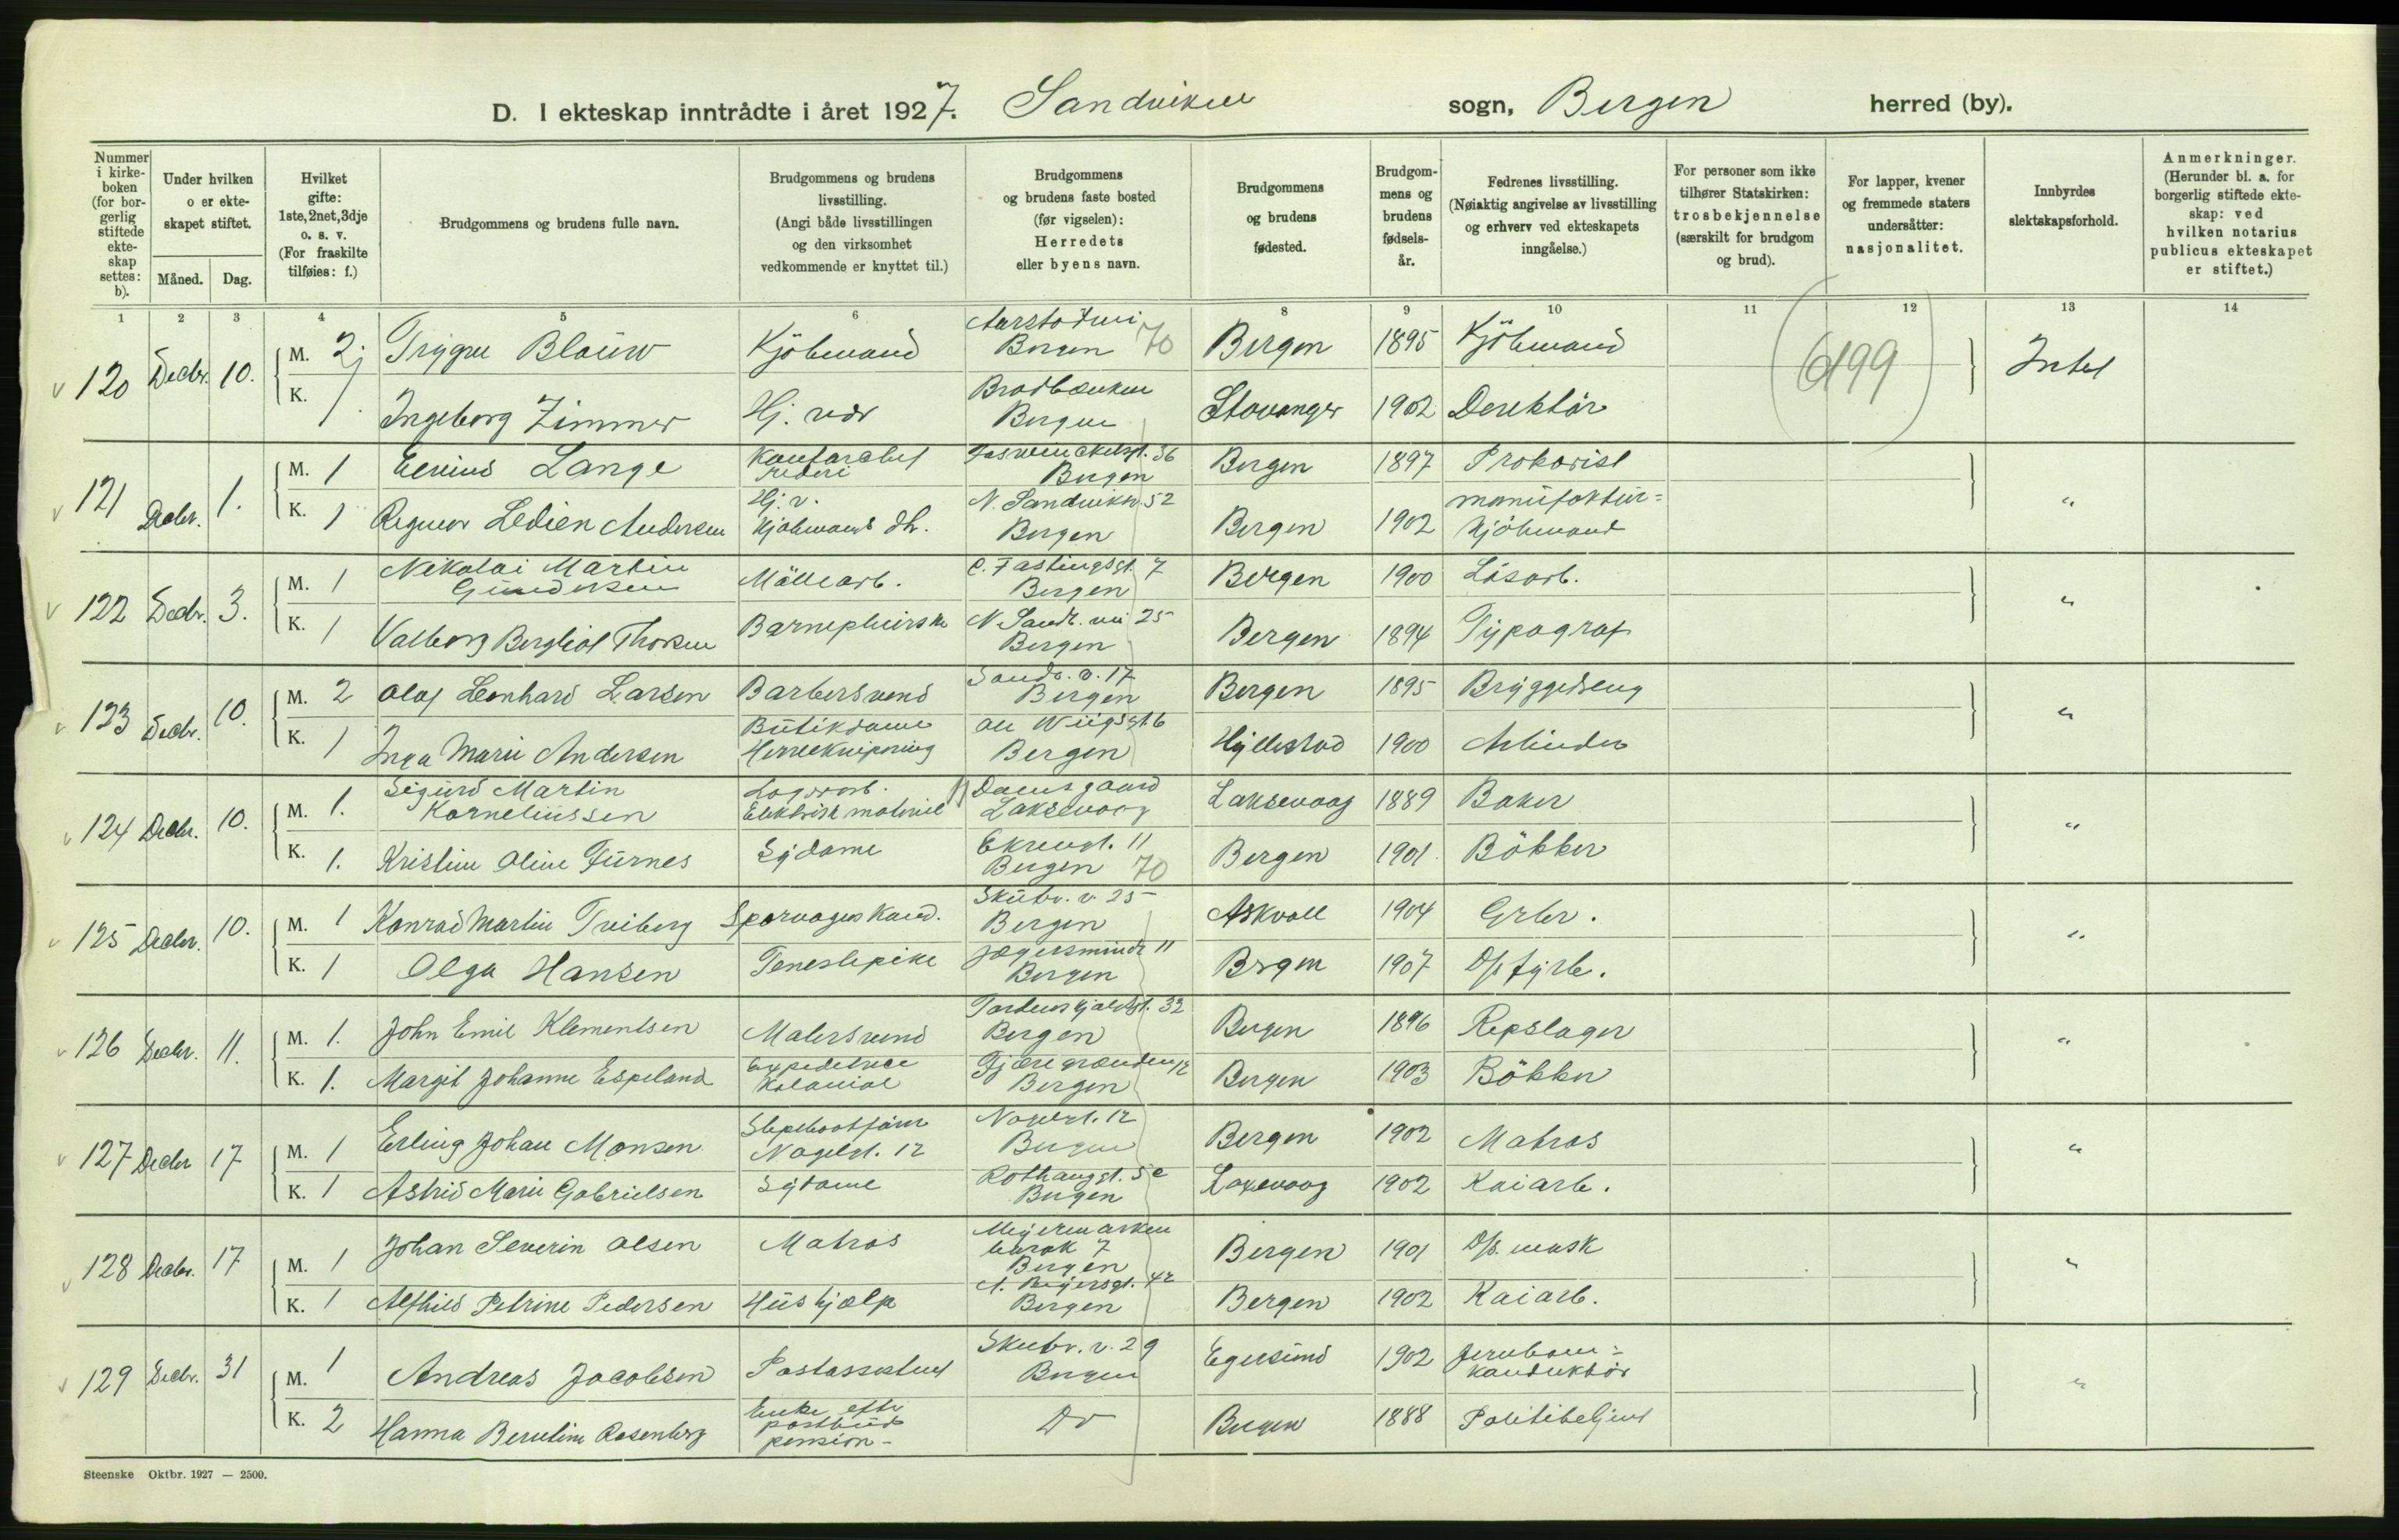 D. I ekteskap inntrådte i året 1927. Sandviken sogn, Bergen herred (by).
Nummer i kirke-boken (for bor-gerlig stiftede ekte-skap settes: b).
Under hvilken o er ekte-skapet stiftet.
Måned. Dag.
Hvilket gifte: 1ste, 2net, 3dje o. s. v. (For fraskilte tilføies: f.)
Brudgommens og brudens fulle navn.
Brudgommens og brudens livsstilling. (Angi både livsstillingen og den virksomhet vedkommende er knyttet til.)
Brudgommens og brudens faste bosted (før vigselen): Herredets eller byens navn.
Brudgommens og brudens fødested.
Brudgom-mens og brudens fødsels-år.
Fedrenes livsstilling. (Nøiaktig angivelse av livsstilling og erhverv ved ekteskapets inngåelse.)
For personer som ikke tilhører Statskirken: trosbekjennelse (særskilt for brudgom og brud).
For lapper, kvener og fremmede staters undersåtter: nasjonalitet.
Innbyrdes slektskapsforhold.
Anmerkninger. (Herunder bl. a. for borgerlig stiftede ekte-skap: ved hvilken notarius publicus ekteskapet er stiftet.)
1 2 3 4 5 6 8 9 10 11 12 13 14
120 Decbr. 10. M. 2 Trygve Blauw Kjöbmand Bergen 70 Bergen 1895 Kjöbmand
K. 1 Ingeborg Zimmer Hj. vær Bradbænken Bergen Stavanger 1902 Direktör
(6199) Intet
121 Decbr. 1. M. 1 Lange rederi 36 Bergen Bergen 1897 Prokurist
K. 1 Andersen Hj. v. Kjöbmands dt. N. Sandviksv. 52 Bergen Bergen 1902 manufaktur= Kjöbmand "
122 Decbr. 3. M. 1 Nikolai Martin Gundersen Möllearb. C. Fastingsgt. 7 Bergen Bergen 1900 Lösarb.
K. 1 Valborg Bergliot Thorsen Barnepleirske N. Sandv. vei 25 Bergen Bergen 1894 Typograf "
123 Decbr. 10. M. 2 Olaf Leonhard Larsen Barbersvend Sandv. v. 17 Bergen Bergen 1895 Bryggeseng
K. 1 Inga Marie Andersen Butikdame Herreekvipering Wiigsgt. 6 Bergen Hyllestad 1900 Arbeider "
124 Decbr. 10. M. 1. Sigurd Martin Korneliussen Elektrisk materiel Damsgaard Laksevaag Laksevaag 1889 Baker
K. 1. Kristine Oline Furnes Sydame Ekrengt. 11 Bergen 70 Bergen 1901 Bökker "
125 Decbr. 10. M. 1 Konrad Martin Treiberg Sporvogns Kond. Skutev. v. 25 Bergen Askvoll 1904 Grbr.
K. 1 Olga Hansen Tenestepike Jægersminde 11 Bergen Brgen 1907 D/s fyrb. "
126 Decbr. 11. M. 1. John Emil Klementsen Malersvend Tordenskjoldsgt. 32 Bergen Bergen 1896 Repslager
K. 1. Margit Johanne Espeland Expeditrice Kolonial Fjæregrænden 12 Bergen Bergen 1903 Bökker "
127 Decbr 17 M. 1 Erling Johan Monsen Nagelgt. 12 Nagelgt. 12 Bergen Bergen 1902 Matros
K. 1 Astrid Marie Gabrielsen Sydame Rothaugt. 5c Bergen Laxevaag 1902 Kaiarb. "
128 Decbr. 17 M. 1 Johan Severin Olsen Matros Meyermarken barak 7 Bergen Bergen 1901 D/s. mask
K. 1 Alfhild Petrine Pedersen Hushjælp 42 Bergen Bergen 1902 Kaiarb. "
129 Decbr. 31 M. 1 Andreas Jacobsen Postassistent Skutev. v. 29 Bergen Egersund 1902 Jernbane= konduktör
K. 2 Hanna Berntine Rosenberg Enke efter postbud pension - Do Bergen 1888 Politibetjent "
Steenske Oktbr. 1927 — 2500.